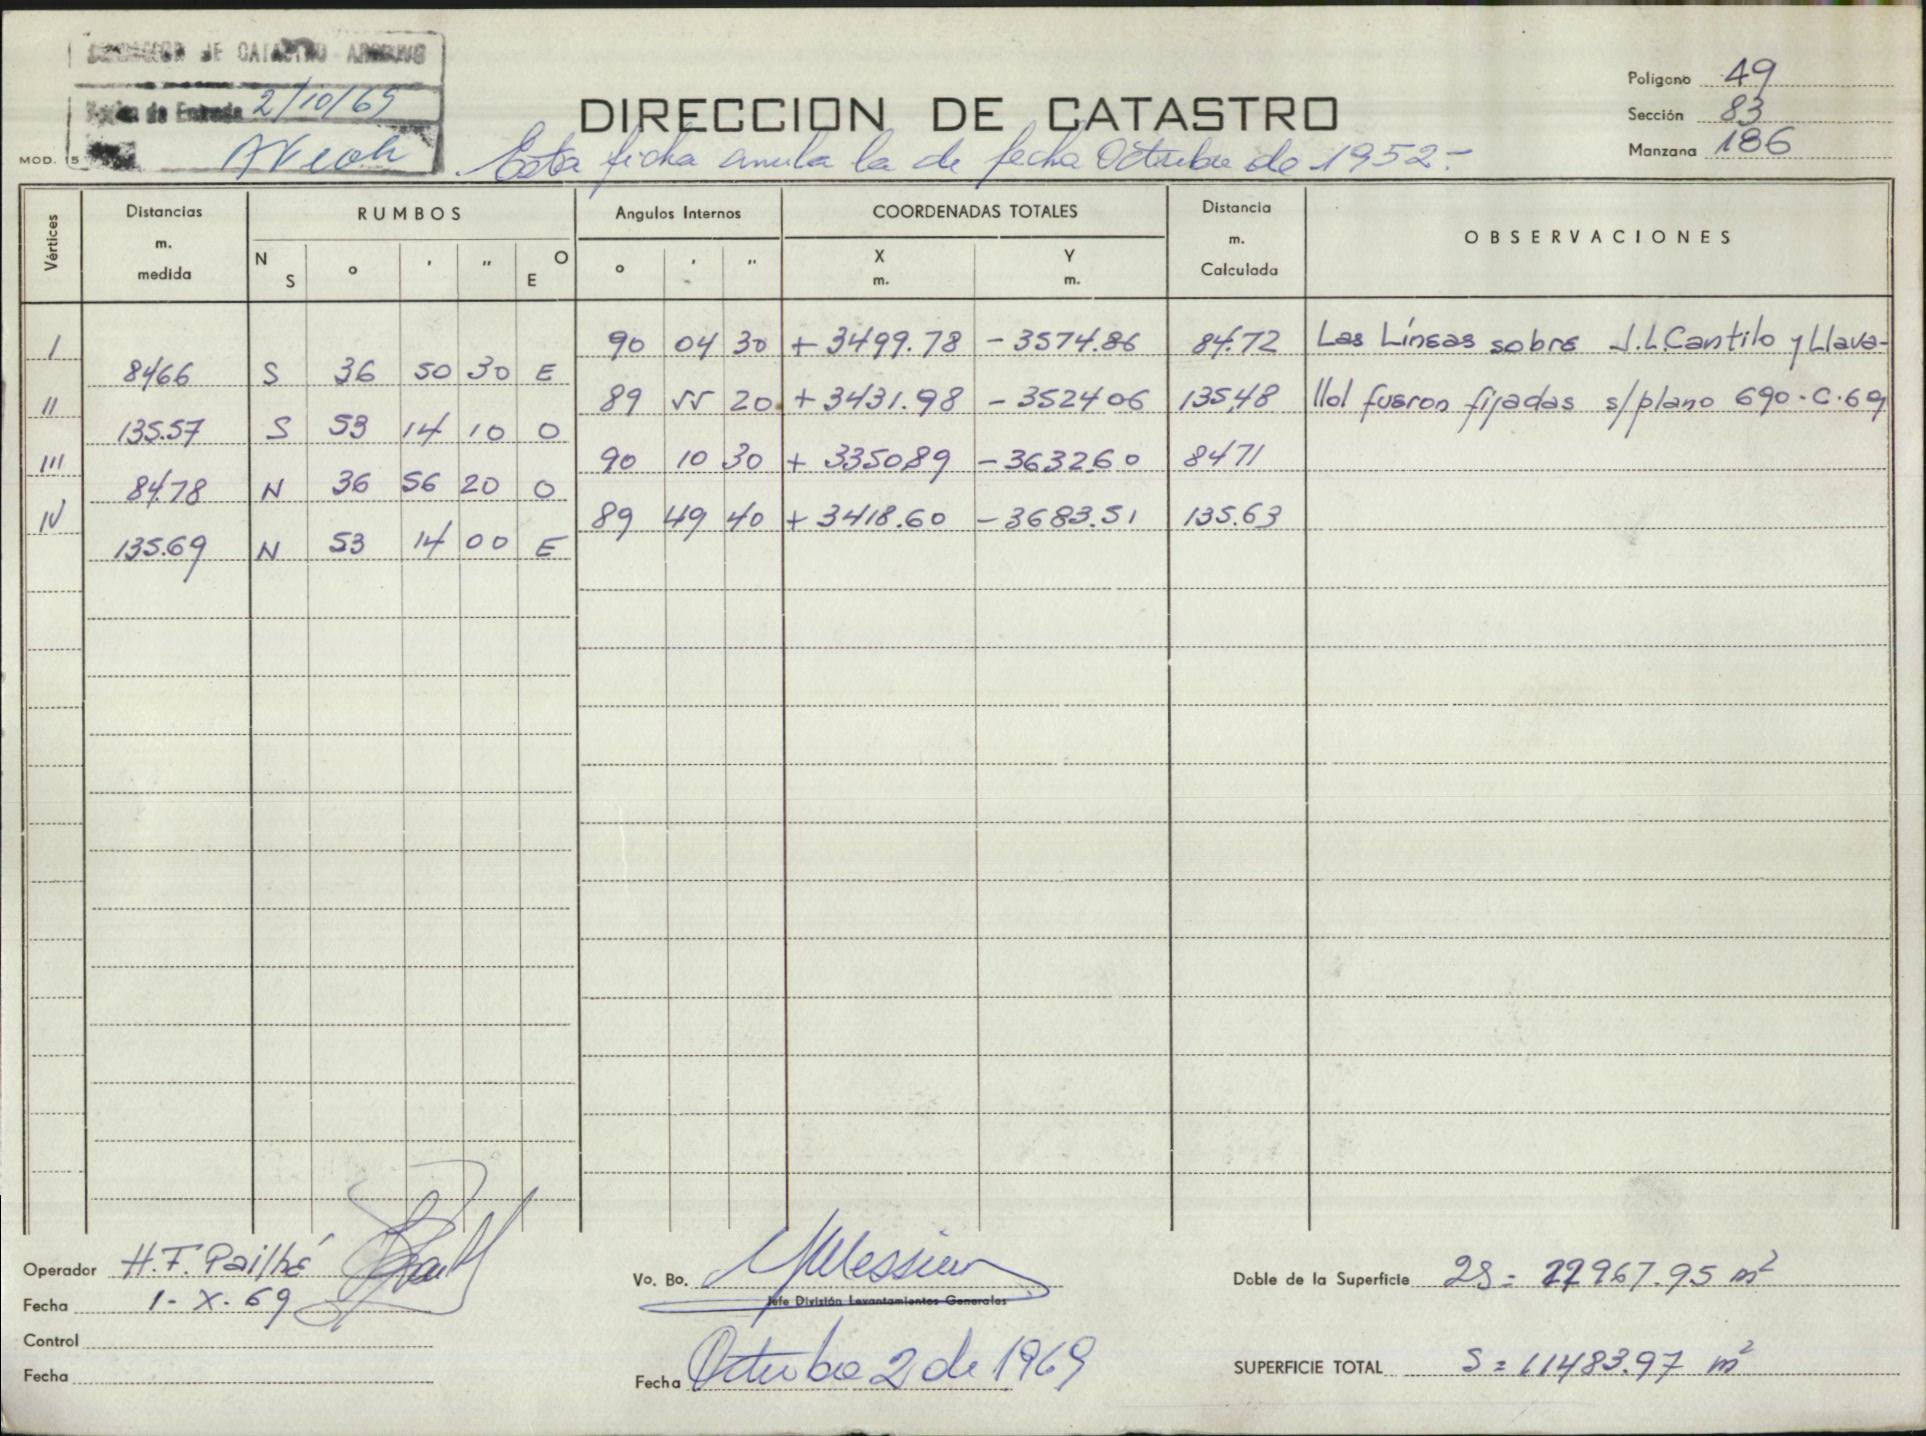 DE CATASTRO
Entrada 2/10/69
MOD. 5
DIRECCION DE CATASTRO
Esta ficha anula la de fecha Octubre de 1952-
Polígono 49
Sección 83
Manzana 186
Vértices
Distancias m. medida
RUMBOS
N S ° ' " O E
Angulos Internos
° ' "
COORDENADAS TOTALES
X m.
Y m.
Distancia m. Calculada
OBSERVACIONES
I 90 04 30 + 3499.78 - 3574.86 84.72 Las Líneas sobre J.L.Cantilo y Llava-
84.66 S 36 50 30 E
II 89 55 20 + 3431.98 - 3524.06 135.48 llol fueron fijadas s/plano 690.C.69
135.57 S 53 14 10 O
III 90 10 30 + 3350.89 - 3632.60 84.71
84.78 N 36 56 20 O
IV 89 49 40 + 3418.60 - 3683.51 135.63
135.69 N 53 14 00 E
Operador H.F. Pailhé
Fecha 1-X-69
Control
Fecha
Vo. Bo.
Jefe División Levantamientos Generales
Fecha Octubre 2 de 1969
Doble de la Superficie 2S = 22967.95 m²
SUPERFICIE TOTAL S = 11483.97 m²